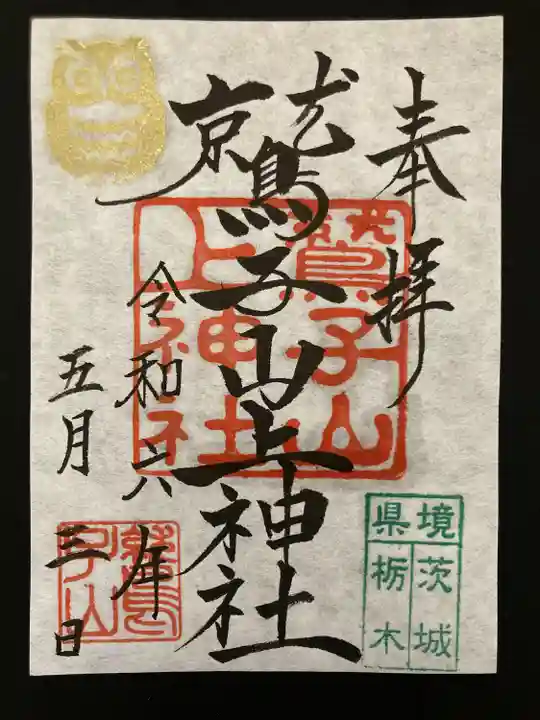 奉拝
鷲子山上神社
令和六年
五月三日
鷲子山
上神社
境県
茨城
栃木
鷲
子山